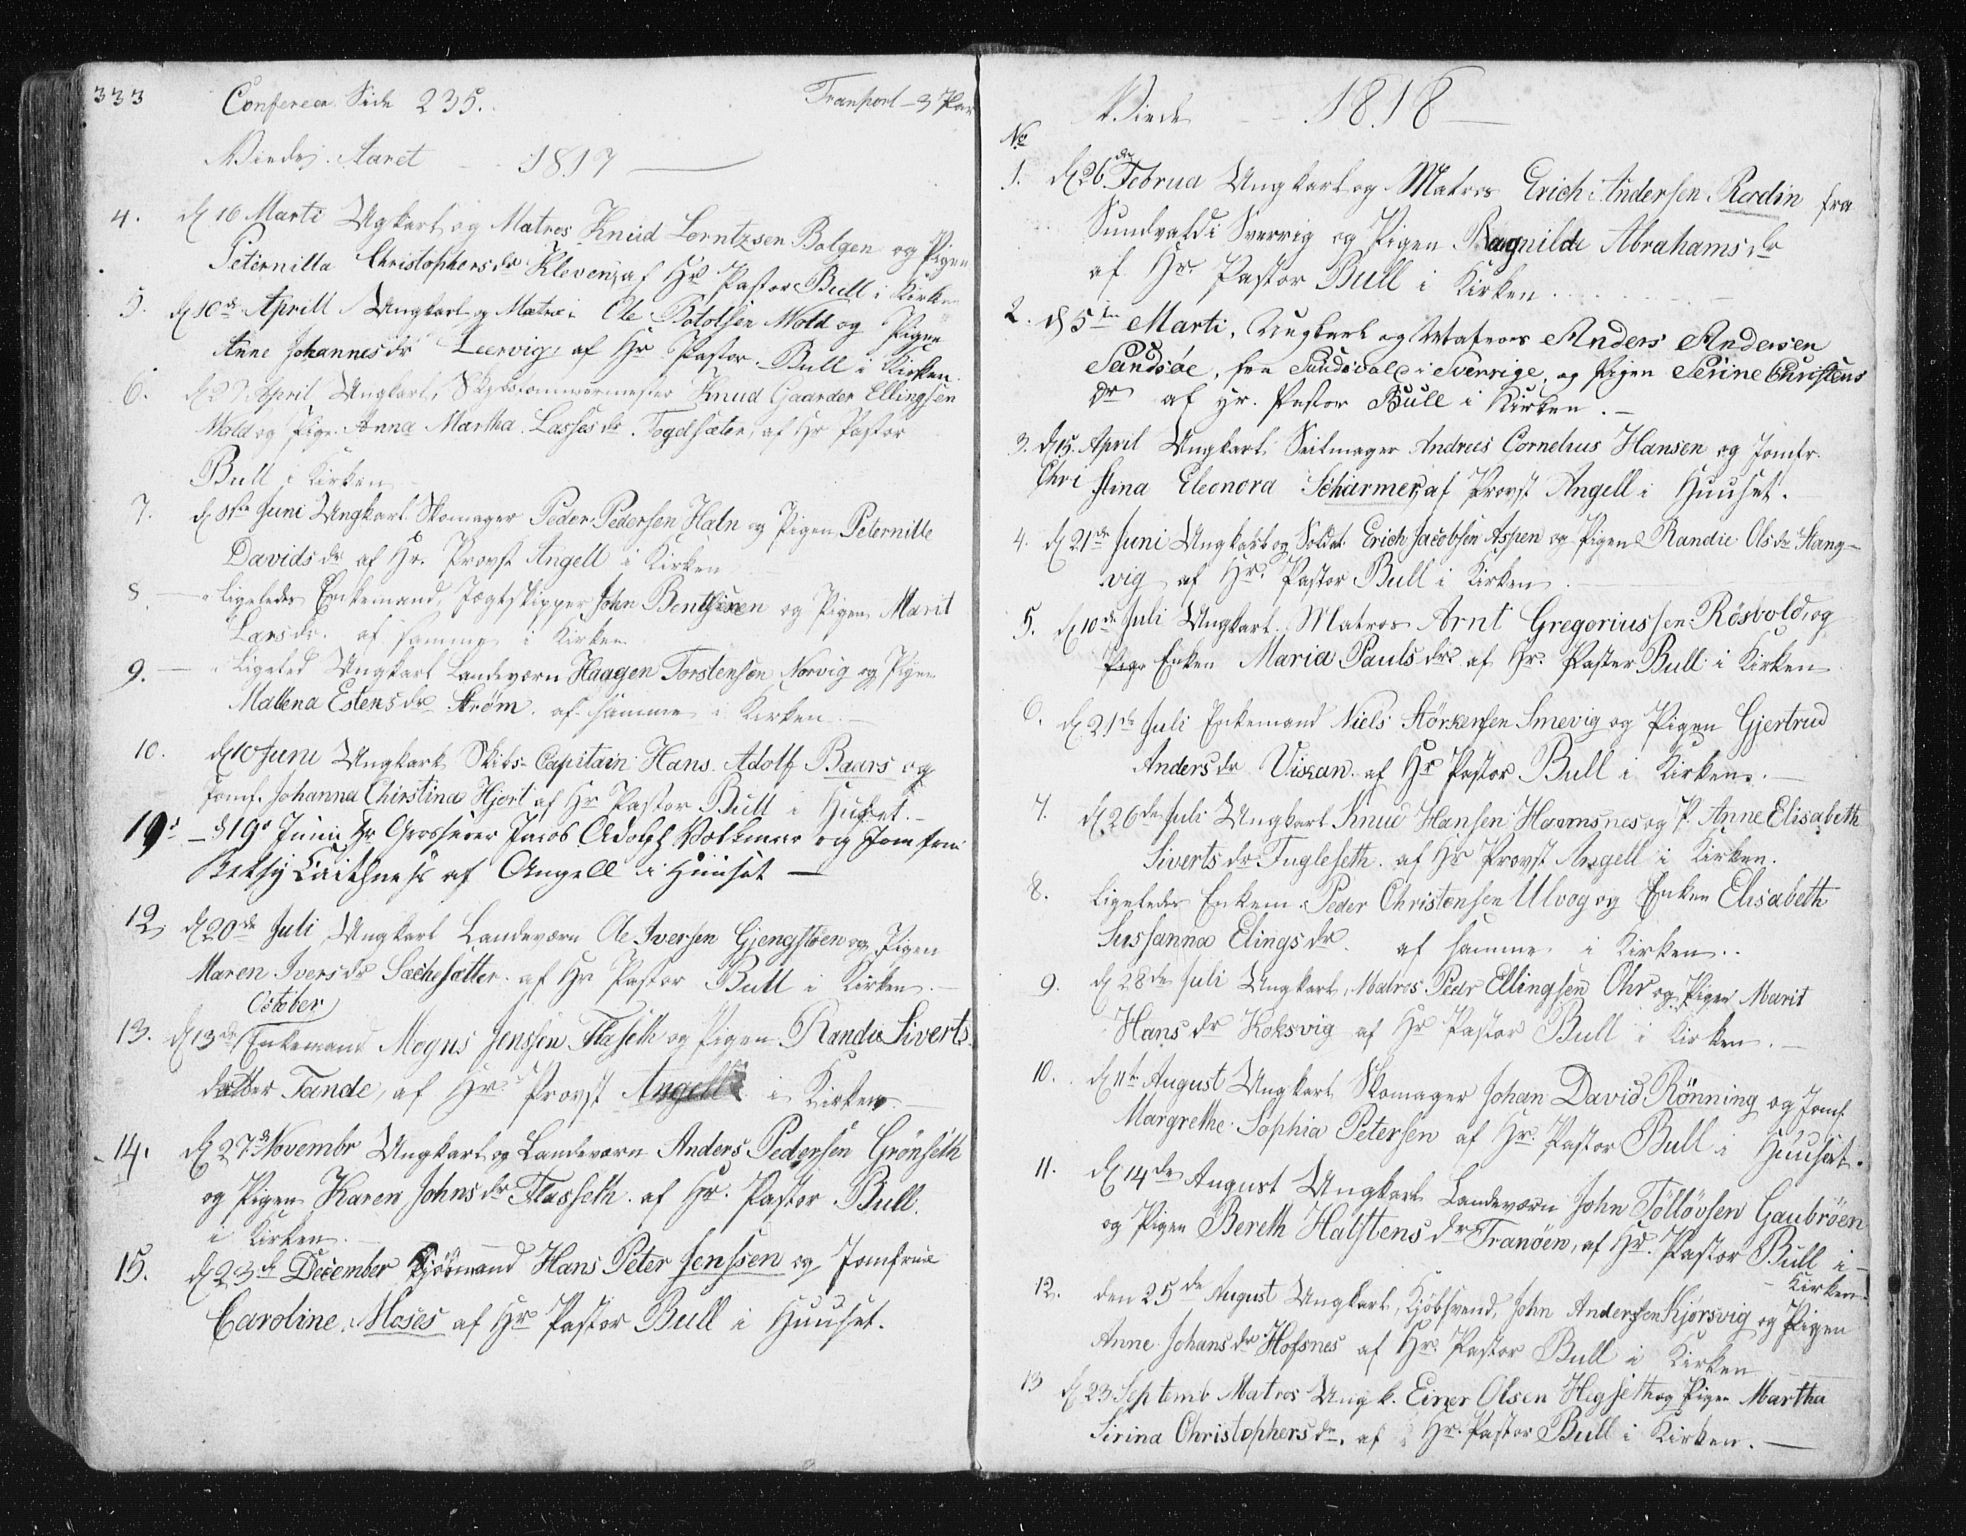 333
Conferer Side 235.
Transport – 3 Par
Viede Aaret 1817
4. d 16 Marti Ugkarl og Matros Knud Lorntzsen Bolgen og Pigen
Peternilla Christophersdr Kleven, af Hr Pastor Bull i Kirken
5. d 10de Aprill Ungkarl og Matros Ole Botolfsen Wold og Pigen
Anne Johannesdr Leervig, af Hr Pastor Bull i Kirken.
6. d 27 April Ungkarl, Skibstømmermester Knud Gaarder Ellingsen
Wold og Pige Anna Martha Lassesdr. Fogelsæter, af Hr Pastor
Bull i Kirken
7. d 8de Juni Ungkarl Skomager Peder Pedersen Haln og Pigen Peternille
Davidsdr af Hr. Provst Angell i Kirken
8. — Ligeledes Enkemand, Jægtskipper John Benthsen og Pigen Marit
Larsdr. af samme i Kirken
9. — Ligeled Ungkarl Landeværn Haagen Torstensen Norvig og Pigen
Mallena Estensdr Strøm af samme i Kirken. —
10. d 10 Juni Ungkarl Skibs-Capitain Hans Adolf Baars og
Jomf. Johanna Christina Hjort af Hr Pastor Bull i Huset. –
d 19de Junii Hr Grosserer Jacob Adolph Volkmar og Jomfru
Betsy Caithness af Angell i Huuset —
12. d 20de Juli Ungkarl Landeværn Ole Iversen Gjengstøen og Pigen
Maren Iversdr Sæthesætter af Hr Pastor Bull i Kirken. —
October
13. d 13de Enkemand Mogns Jenssen Flaseth og Pigen Randie Siverts
datter Tande, af Hr Provst Angell i Kirken. —
14. d 27de Novembr Ungkarl og Landeværn Anders Pedersen Grönseth
og Pigen Karen Johnsdr Flasseth af Hr. Pastor Bull
i Kirken. —
15. d 23de December Kjöbmand Hans Peter Jenssen og Jomfrue
Caroline Moses af Hr Pastor Bull i Huuset.
Viede 1818
No
1. d 26de Februa Ungkarl og Matros Erich Andersen Rodin fra
Sundvald i Sverrig og Pigen Ragnilde Abrahamsdr
af Hr. Pastor Bull i Kirken
2. d 5te Marti, Ungkarl og Matros Anders Andersen
Sandsøe, fra Sundsvale i Sverrige, og Pigen Serine Christens
dr af Hr. Pastor Bull i Kirken. –
3. d 15. April Ungkarl Seilmager Andreas Cornelius Hansen og Jomfr.
Christina Eleonora Scharmer, af Provst Angell i Huuset.
4. d 21de Juni Ungkarl og Soldat Erich Jacobsen Aspen og Pigen Randie Olsdr Stang-
vig af Hr. Pastor Bull i Kirken
5. d 10de Juli Ungkarl Matros Arnt Gregoriussen Rösvold og
Pige Enken Maria Paulsdr af Hr. Pastor Bull i Kirken
6. d 21de Juli Enkemand Niels Störkersen Smevig og Pigen Gjertrud
Andersdr Viskan af Hr Pastor Bull i Kirken. —
7. d 26de Juli Ungkarl Knud Hansen Havmsnes og P. Anne Elisabeth
Sivertsdr Fugleseth. af Hr Provst Angell i Kirken.
8. Ligeledes Enkem. Peder Christensen Ulvog og Enken Elisabeth
Sussanna Elingsdr. af samme i Kirken..
9. d 28de Juli Ungkarl, Matros Pedr Ellingsen Ohr og Pigen Marit
Hansdr Koksvig af Hr Pastor Bull i Kirken. —
10. d 11te August Ungkarl Skomager Johan David Rönning og Jomf.
Margrethe Sophia Petersen af Hr. Pastor Bull i Huuset.
11. d 14de August Ungkarl Landeværn John Töllövsen Gaubröen
og Pigen Bereth Halstensdr Tranöen, af Hr. Pastor Bull i
Kirken
12. den 25de August Ungkarl, Kjöbsvend, John Anderssen Kjørsvig og Pigen
Anne Johansdr Hofsnes af Hr Pastor Bull i Kirken
13 d 23 Septemb Matros Ungk. Einer Olsen Hegseth og Pigen Martha
Sirina Christophersdr. af Hr. Pastor Bull i Kirken. —